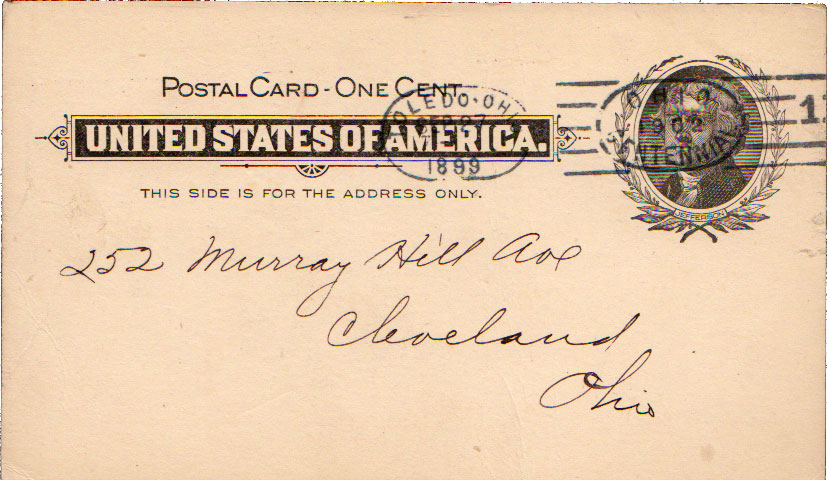 POSTAL CARD - ONE CENT.
UNITED STATES OF AMERICA.
THIS SIDE IS FOR THE ADDRESS ONLY.
TOLEDO·OHIO
SEP 27
1899
OHIO
1902
CENTENNIAL
1
JEFFERSON
252 Murray Hill Ave
Cleveland
Ohio